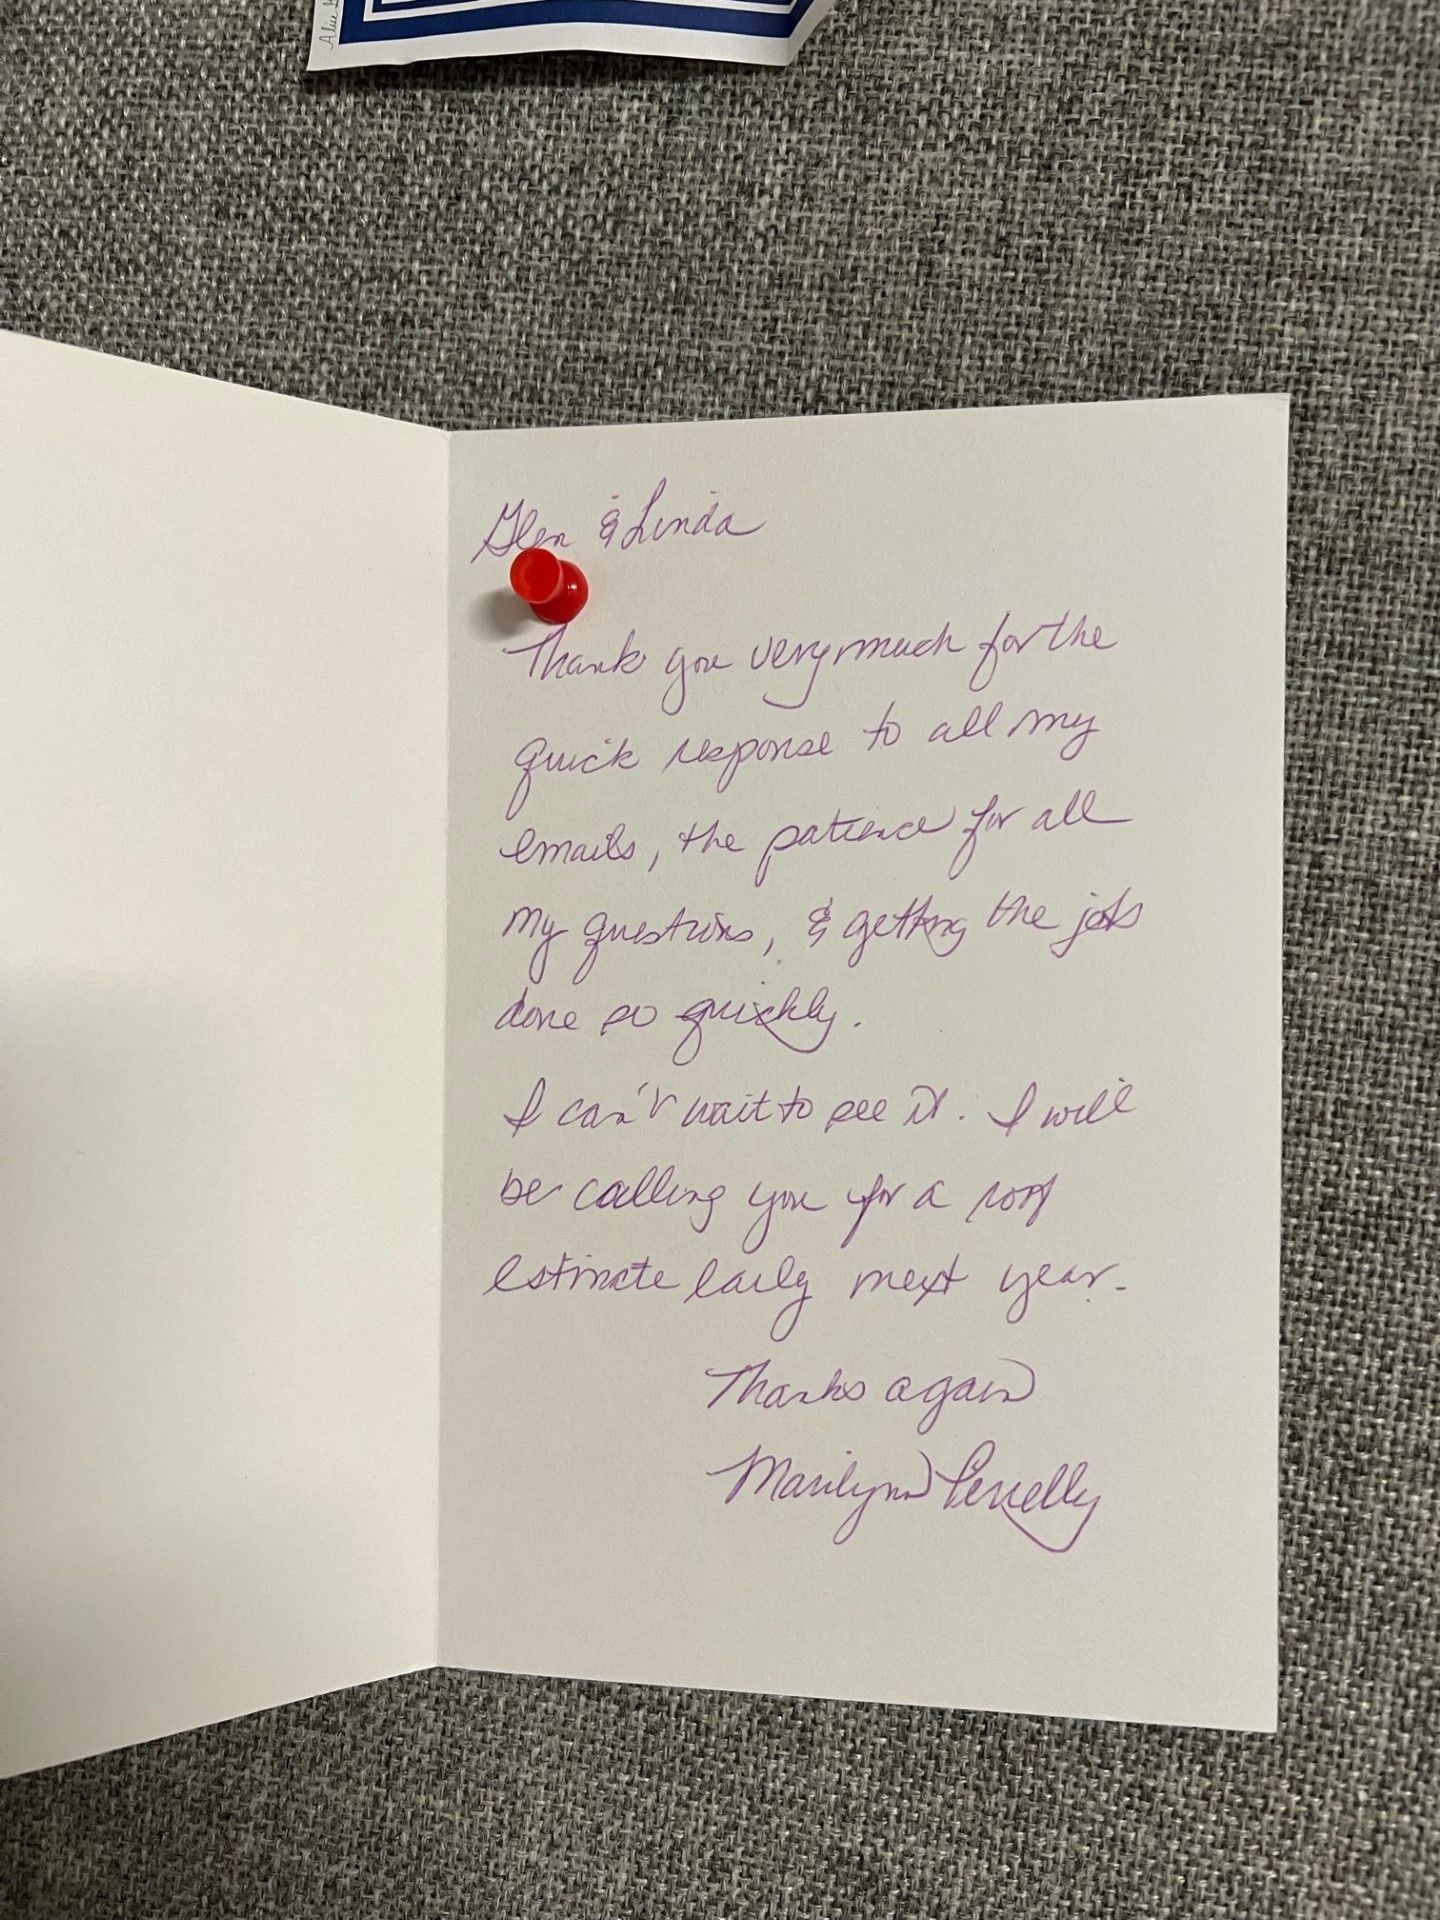 Glen & Linda
Thank you very much for the
quick response to all my
emails, the patience for all
my questions, & getting the job
done so quickly.
I can't wait to see it. I will
be calling you for a roof
estimate early next year.
Thanks again
Marilynn